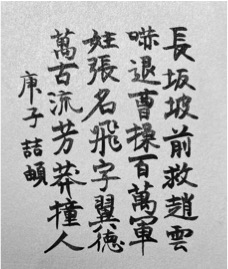 長坂坡前救趙雲
嚇退曹操百萬軍
姓張名飛字翼德
萬古流芳莽撞人
庚子 喆頔